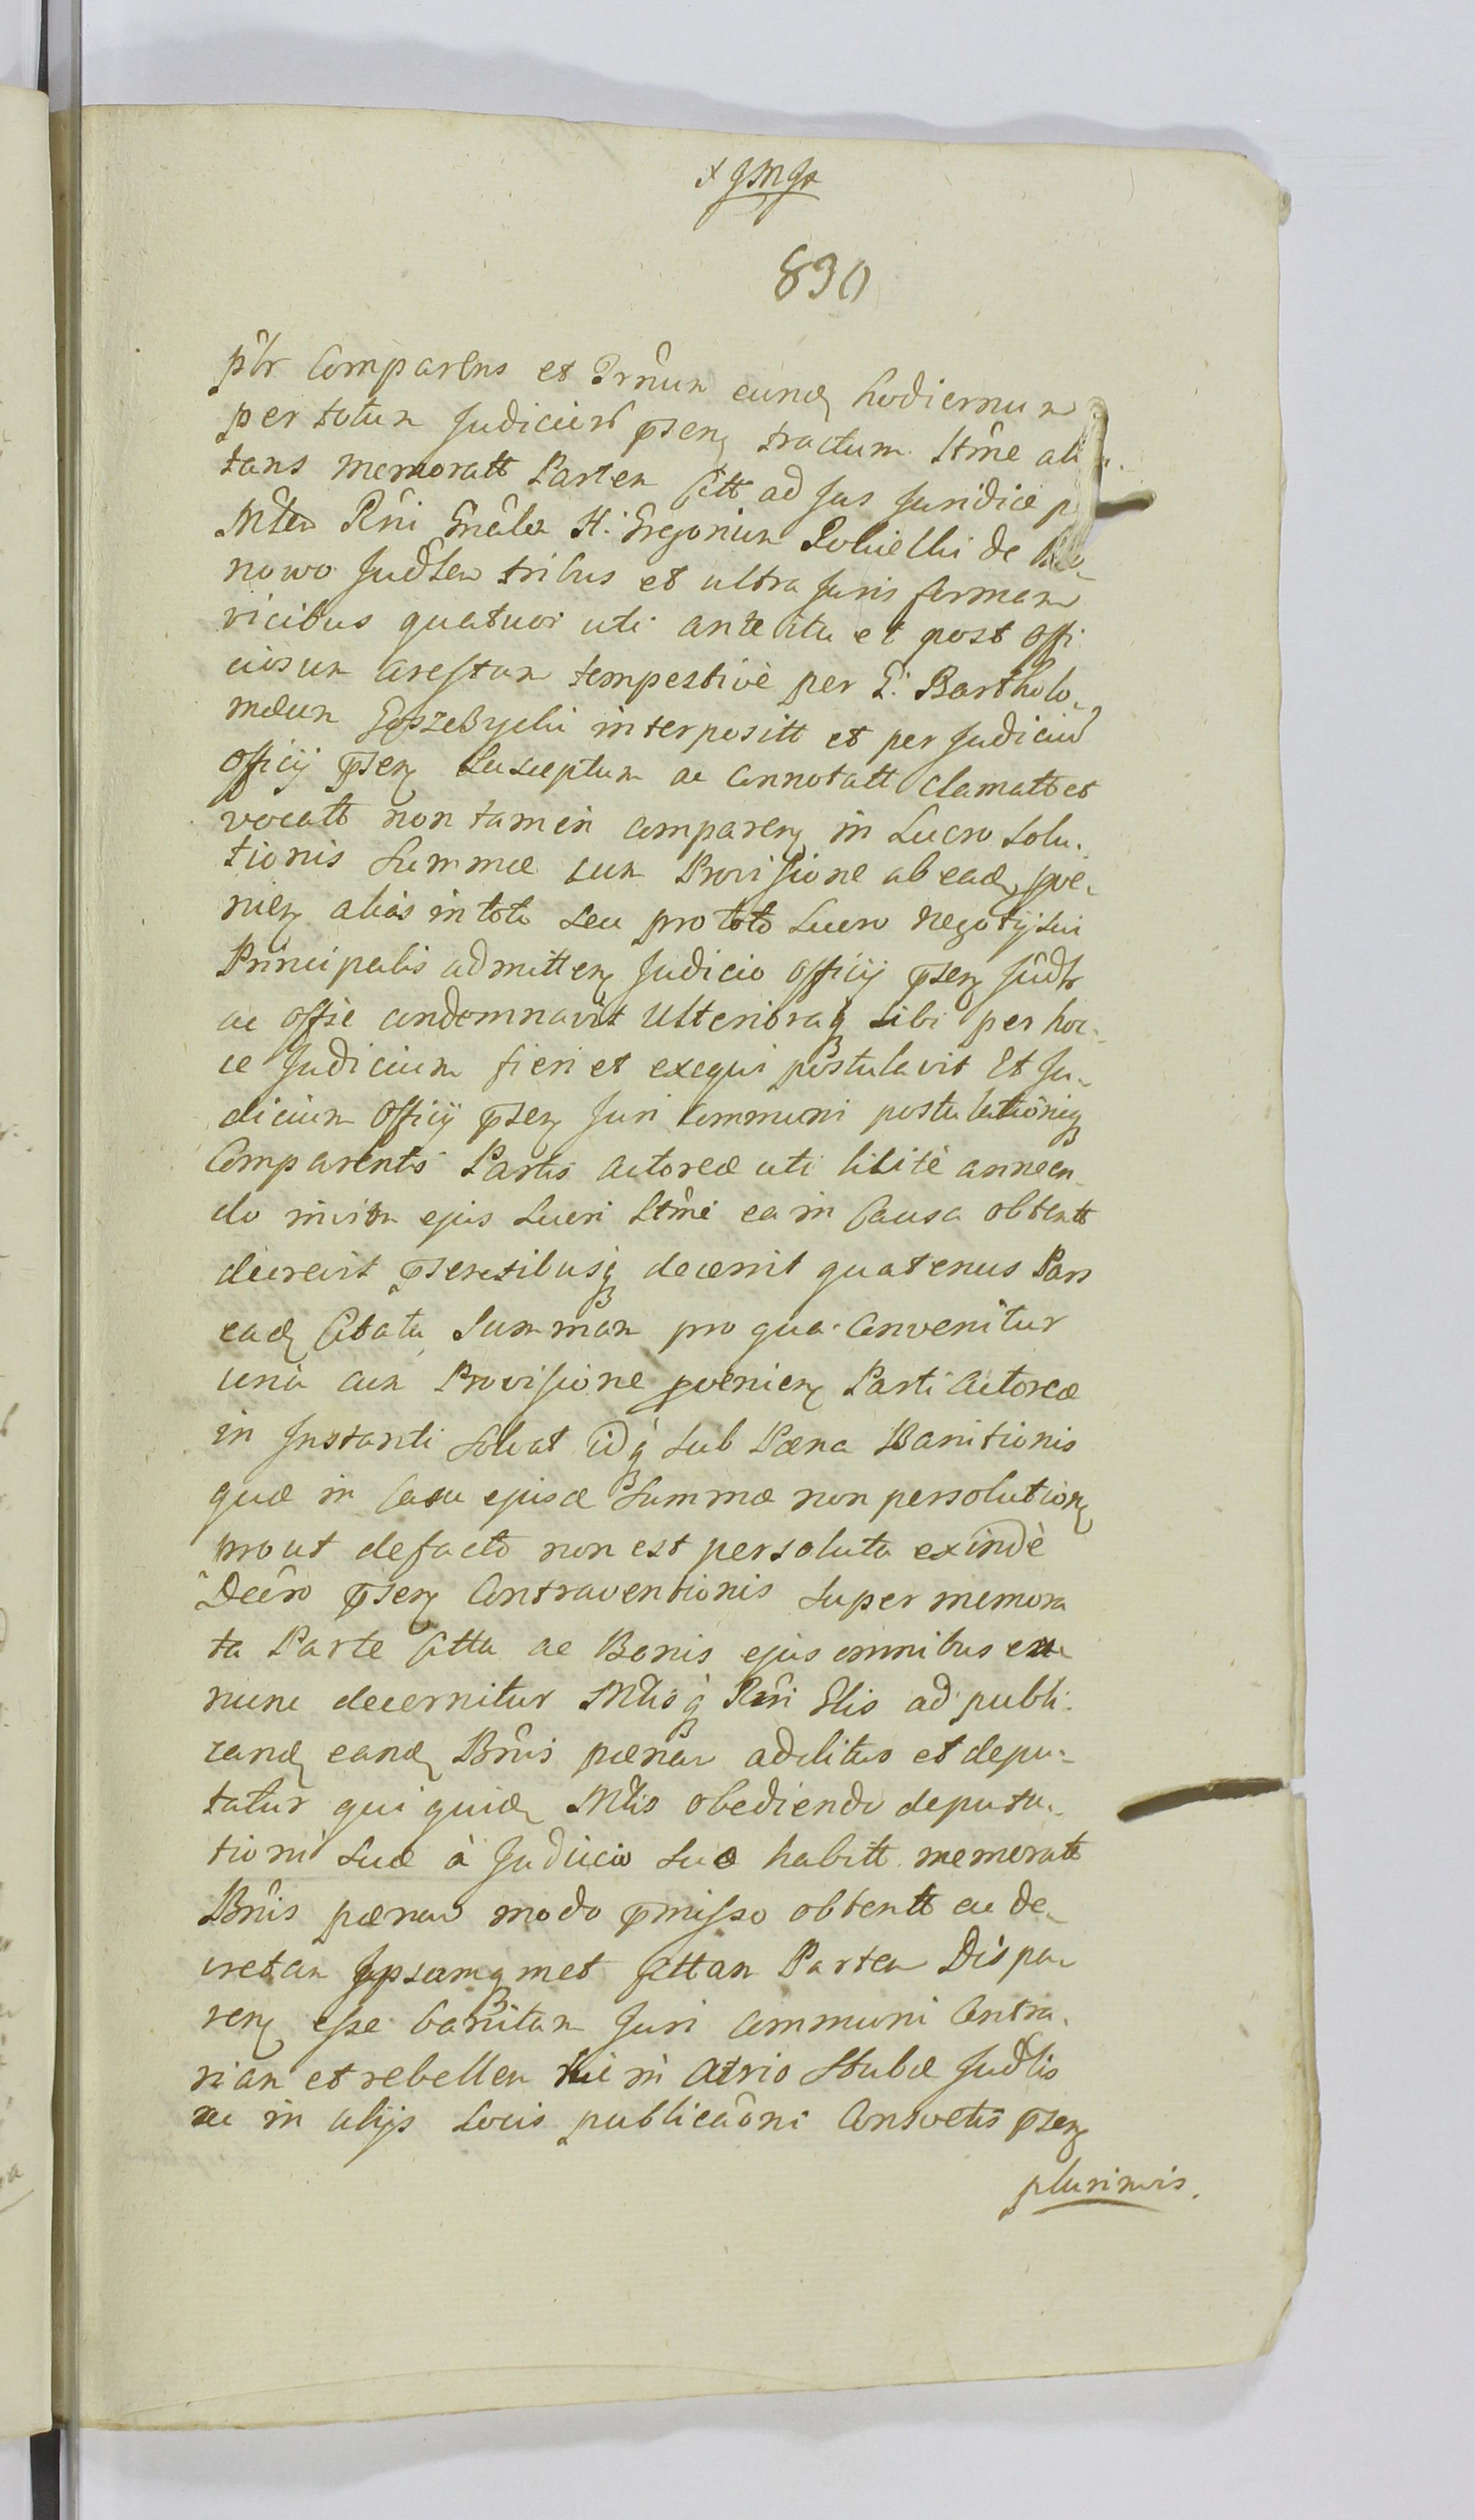 830
ptr Comparens et Trnum eund hodiernum
per totum Judiciers psen tractum ltme ali
tans memoratt Partem Citt ad Jus Juridice p
Mlem Rni Gnalem H. Gregorium de
nowo Judlem tribus et ultra Juris formam
vicibus quatuor uti ante ita et post offi
ciosum Arestum tempestivè per G. Bartholo-
mæum interpositt et per Judiciu
officij psen Susceptum ac Connotatt Clamatt et
vocatt non tamen comparen in Lucro Solu-
tionis Summæ cum Provisione ab ead prove-
nien alias in toto seu pro toto Lucro negotij sui
Principalis admitten Judicio officij psen Judr
ac offse condemnavit Ulterioraq sibi per hoc-
ce Judicium fieri et exequi postulavit Et Ju-
dicium Officij psen Juri Communi postulationiq
Comparentis Partis Actoreæ uti licite annuen-
do in vim ejus Lucri ltme ea in Causa obtentt
decrevit psentibusq decernit quatenus Pars
ead Citata Summam pro qua Convenitur
unà cum Provisione provenien Parti Actoreæ
in Instanti Solvat idq Sub Pæna Banitionis
quæ in Casu ejusd Summæ non persolution
prout defacto non est persoluta exindè
Decro psen Contraventionis super memora
ta Parte Citta ac Bonis ejus omnibus ex
nunc decernitur Mlisq Rni Glis ad publi-
cand eand Bnis pænam additus et depu-
tatur qui quid Mlis obediendo deputa-
tioni Suæ à Judicio Suæ habitt memoratt
Bnis pænam modo pmisso obtentt ac de-
cretam Ipsamq met Cittam Partem Dispa-
ren esse banitam Juri Communi Contra-
riam et rebellem hic in Atrio Stubæ Judlis
ac in alijs Locis publicaoni Consvetis psen
plurimis.